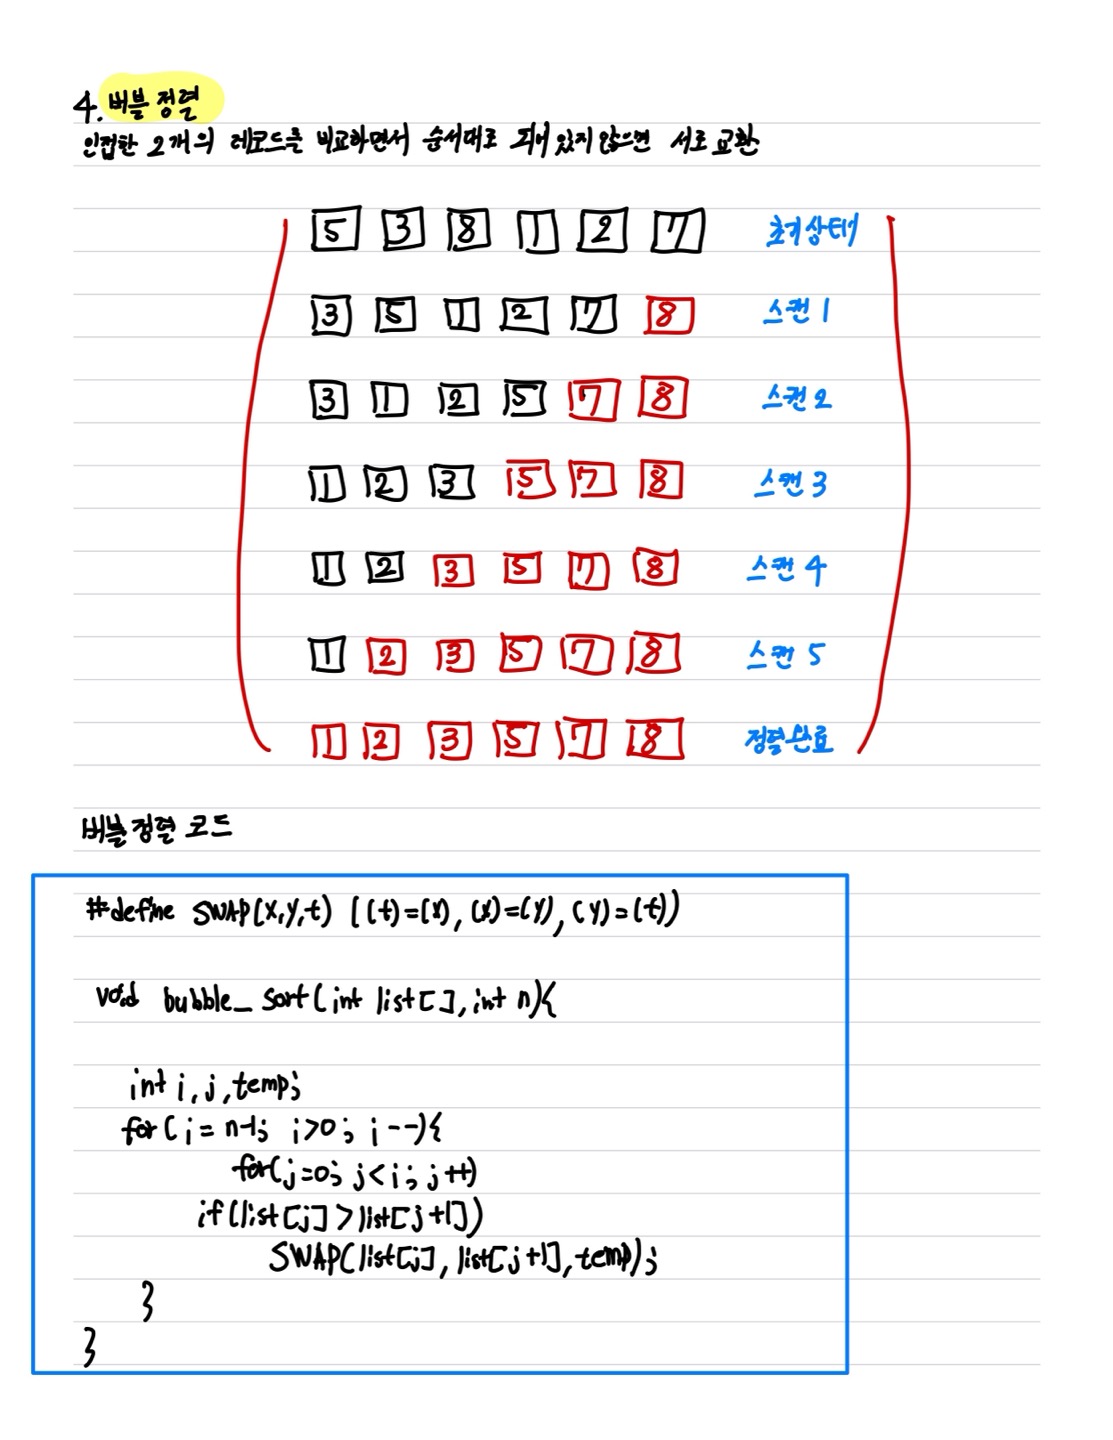 4. 버블 정렬
인접한 2개의 레코드를 비교하면서 순서대로 되어 있지 않으면 서로 교환
5 3 8 1 2 7 초기상태
3 5 1 2 7 8 스캔 1
3 1 2 5 7 8 스캔 2
1 2 3 5 7 8 스캔 3
1 2 3 5 7 8 스캔 4
1 2 3 5 7 8 스캔 5
1 2 3 5 7 8 정렬완료
버블 정렬 코드
#define SWAP(x,y,t) ((t)=(x), (x)=(y), (y)=(t))
void bubble_sort(int list[], int n){
int i, j, temp;
for(i=n-1; i>0; i--){
for(j=0; j<i; j++)
if(list[j]>list[j+1])
SWAP(list[j], list[j+1], temp);
}
}